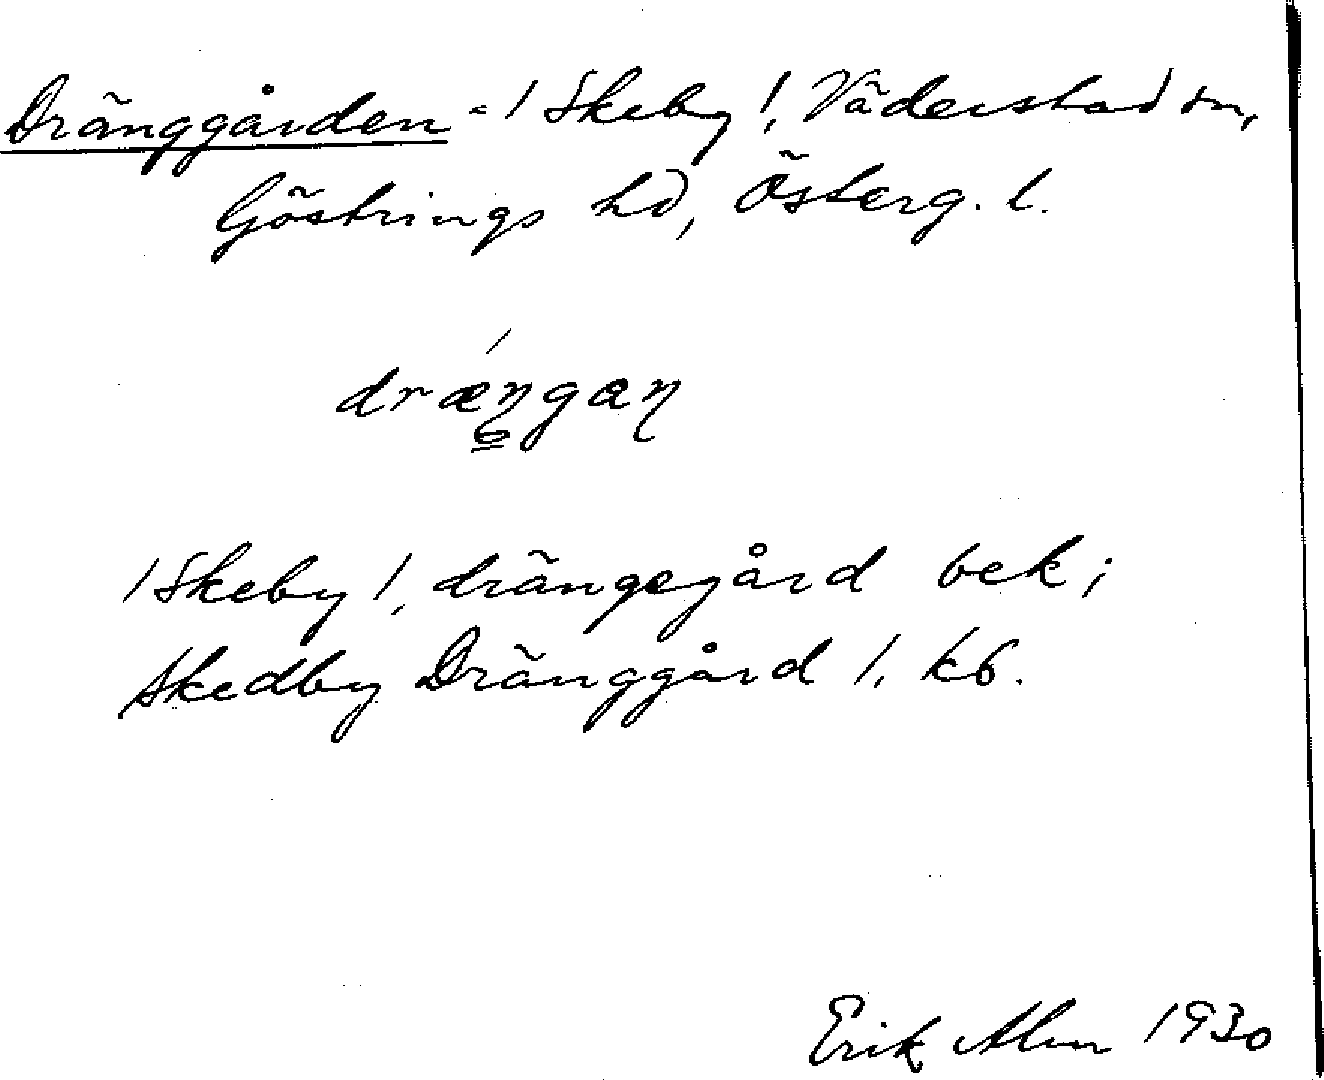 Dränggården = / Skeby /, Väderstad sn,
Göstrings hd, Österg. l.
dræŋgaŋ
/ Skeby /, drängegård bek;
Skedby Dränggård /, kb.
Erik Alm 1930